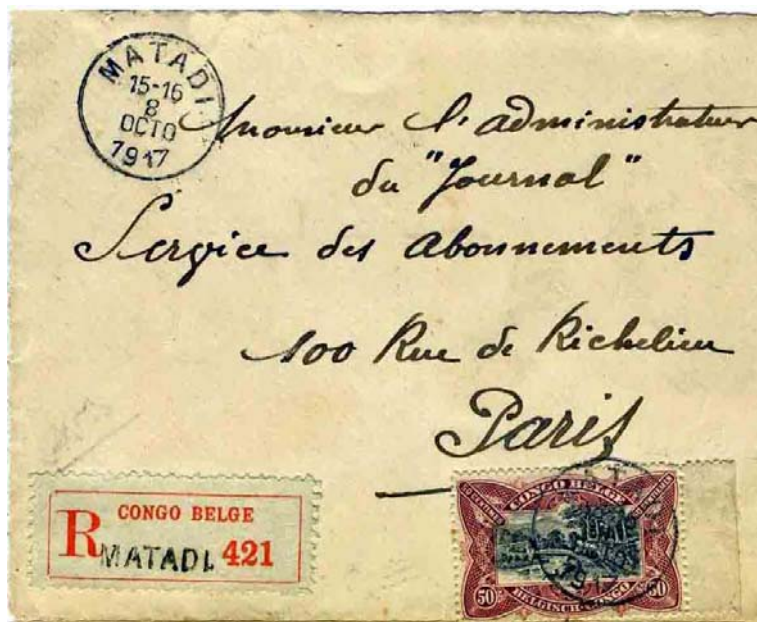 MATADI
15-16
8
OCTO
1917
Monsieur l'administrateur
du "Journal"
Service des abonnements
100 Rue de Richelieu
Paris
CONGO BELGE
R MATADI. 421
CONGO BELGE
50 BELGISCH-CONGO 50
1917